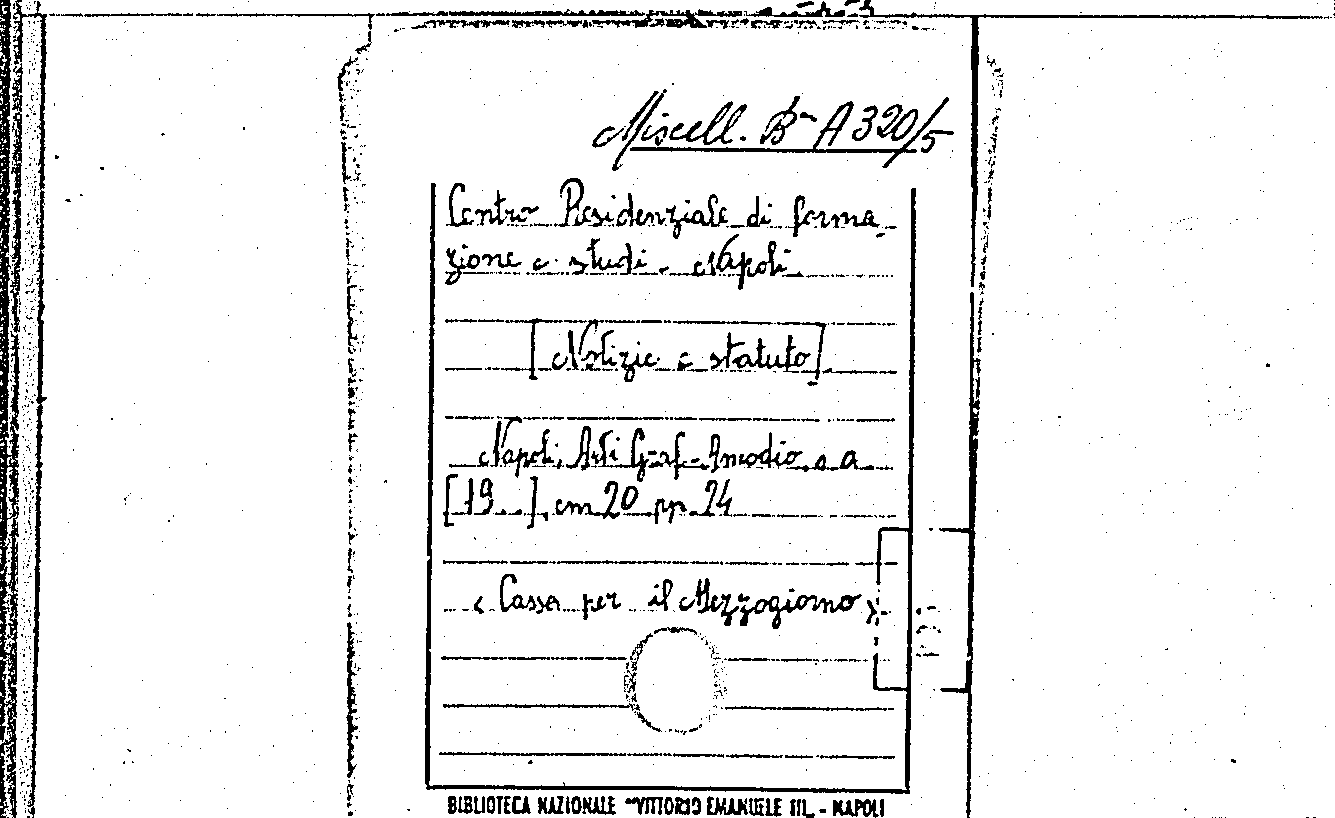 Miscell. Bª A 320/5
Centro Residenziale di forma_
zione e studi - Napoli
[Notizie e statuto].
Napoli, Arti Graf. Amodio s a
[19..], cm 20 pp 24
«Cassa per il Mezzogiorno»
BIBLIOTECA NAZIONALE "VITTORIO EMANUELE III. - NAPOLI